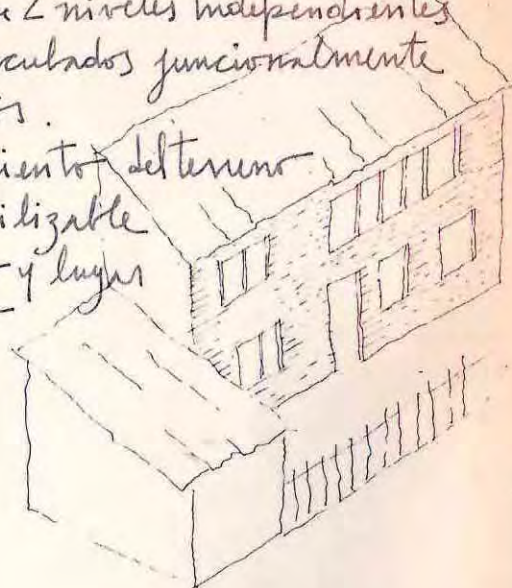 2 niveles independientes
culados funcionalmente
s.
iento del terreno
ilizable
y lugar